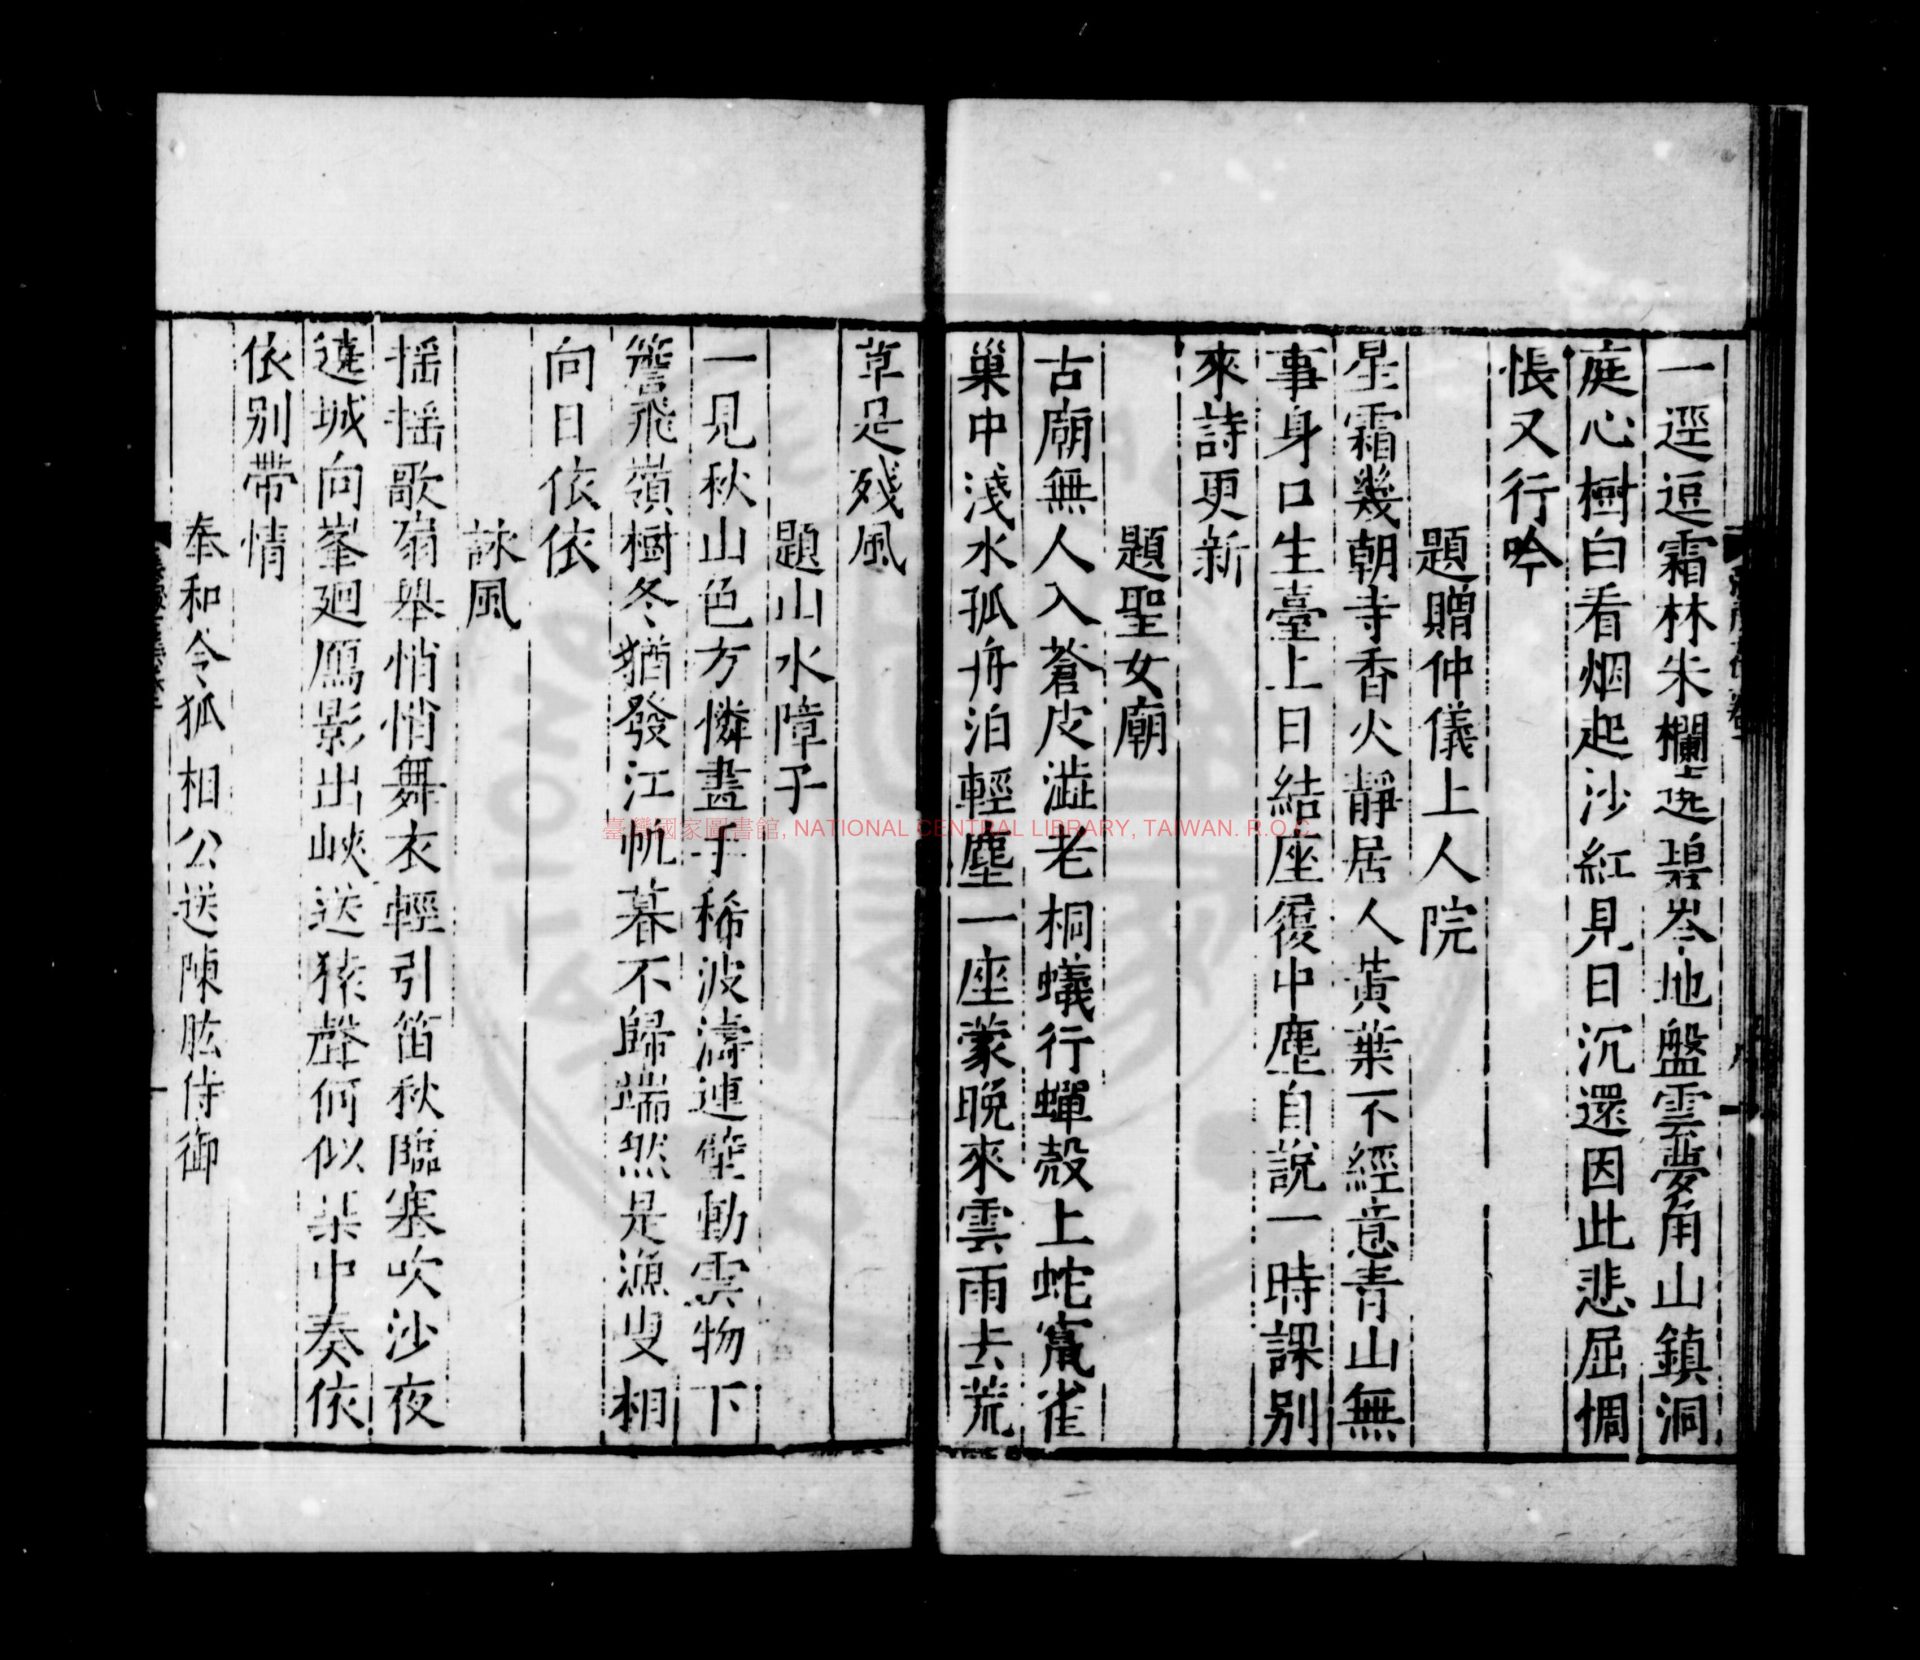 一逕逗霜林朱欄遶碧岑地盤雲夢角山鎮洞
庭心樹白看烟起沙紅見日沉還因此悲屈惆
悵又行吟
題贈仲儀上人院
星霜幾朝寺香火靜居人黃葉不經意青山無
事身口生臺上日結座履中塵自說一時課别
來詩更新
題聖女廟
古廟無人入蒼皮澁老桐蟻行蟬殻上蛇竄雀
巢中淺水孤舟泊輕塵一座蒙晚來雲雨去荒
草是殘風
題山水障子
一見秋山色方憐畫手稀波濤連壁動雲物下
簷飛嶺樹冬猶發江帆暮不歸端然是漁叟相
向日依依
詠風
揺揺歌扇舉悄悄舞衣輕引笛秋臨塞吹沙夜
遶城向峯廻鴈影出峽送猿聲何似琹中奏依
依别帶情
奉和令狐相公送陳肱侍御
臺灣國家圖書館, NATIONAL CENTRAL LIBRARY, TAIWAN. R.O.C.